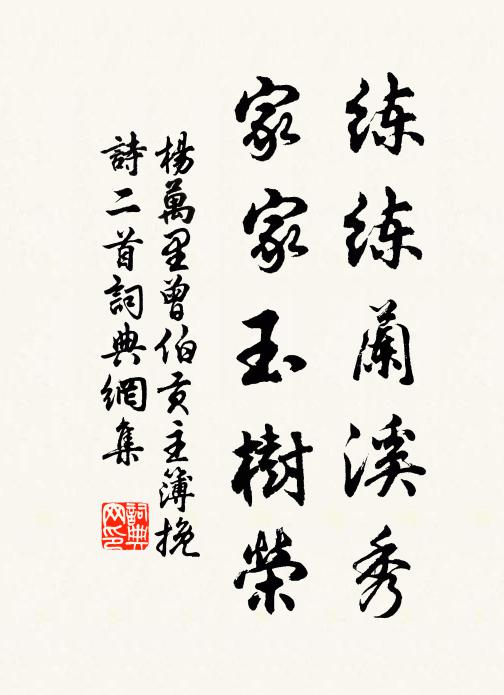 练练蘭溪秀
家家玉樹榮
楊萬里曾伯贡主簿挽
詩二首詞典網集
詞典
网印